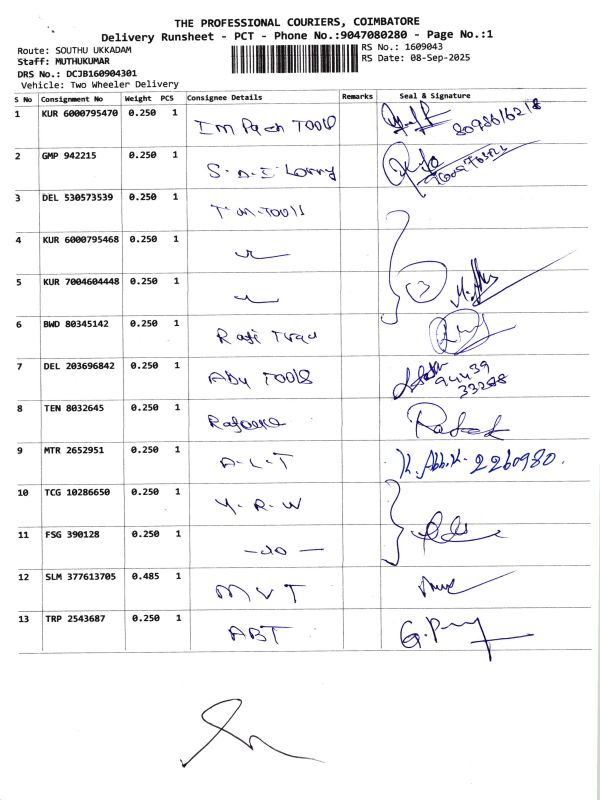 THE PROFESSIONAL COURIERS, COIMBATORE
Delivery Runsheet - PCT - Phone No.:9047080280 - Page No.:1
Route: SOUTHU UKKADAM RS No.: 1609043
Staff: MUTHUKUMAR RS Date: 08-Sep-2025
DRS No.: DCJB160904301
Vehicle: Two Wheeler Delivery
S No Consignment No Weight PCS Consignee Details Remarks Seal & Signature
1 KUR 6000795470 0.250 1 8098616218
2 GMP 942215 0.250 1 Lorry
3 DEL 530573539 0.250 1
4 KUR 6000795468 0.250 1
5 KUR 7004604448 0.250 1 (3)
6 BWD 80345142 0.250 1
7 DEL 203696842 0.250 1 TOOLS 94439
33298
8 TEN 8032645 0.250 1
9 MTR 2652951 0.250 1 A-L-T 2260980.
10 TCG 10286650 0.250 1 Y. R. W
11 FSG 390128 0.250 1 -do-
12 SLM 377613705 0.485 1 MVT
13 TRP 2543687 0.250 1 ABT